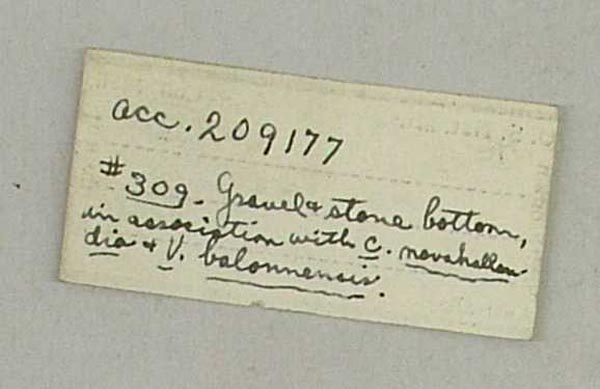 acc. 209177
#309. Gravel & stone bottom,
in association with C. novahollan-
dia & V. balonnensis.